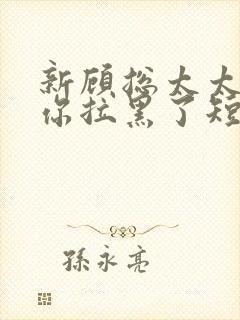 新顾总太太
你拉黑了短
孫永亮